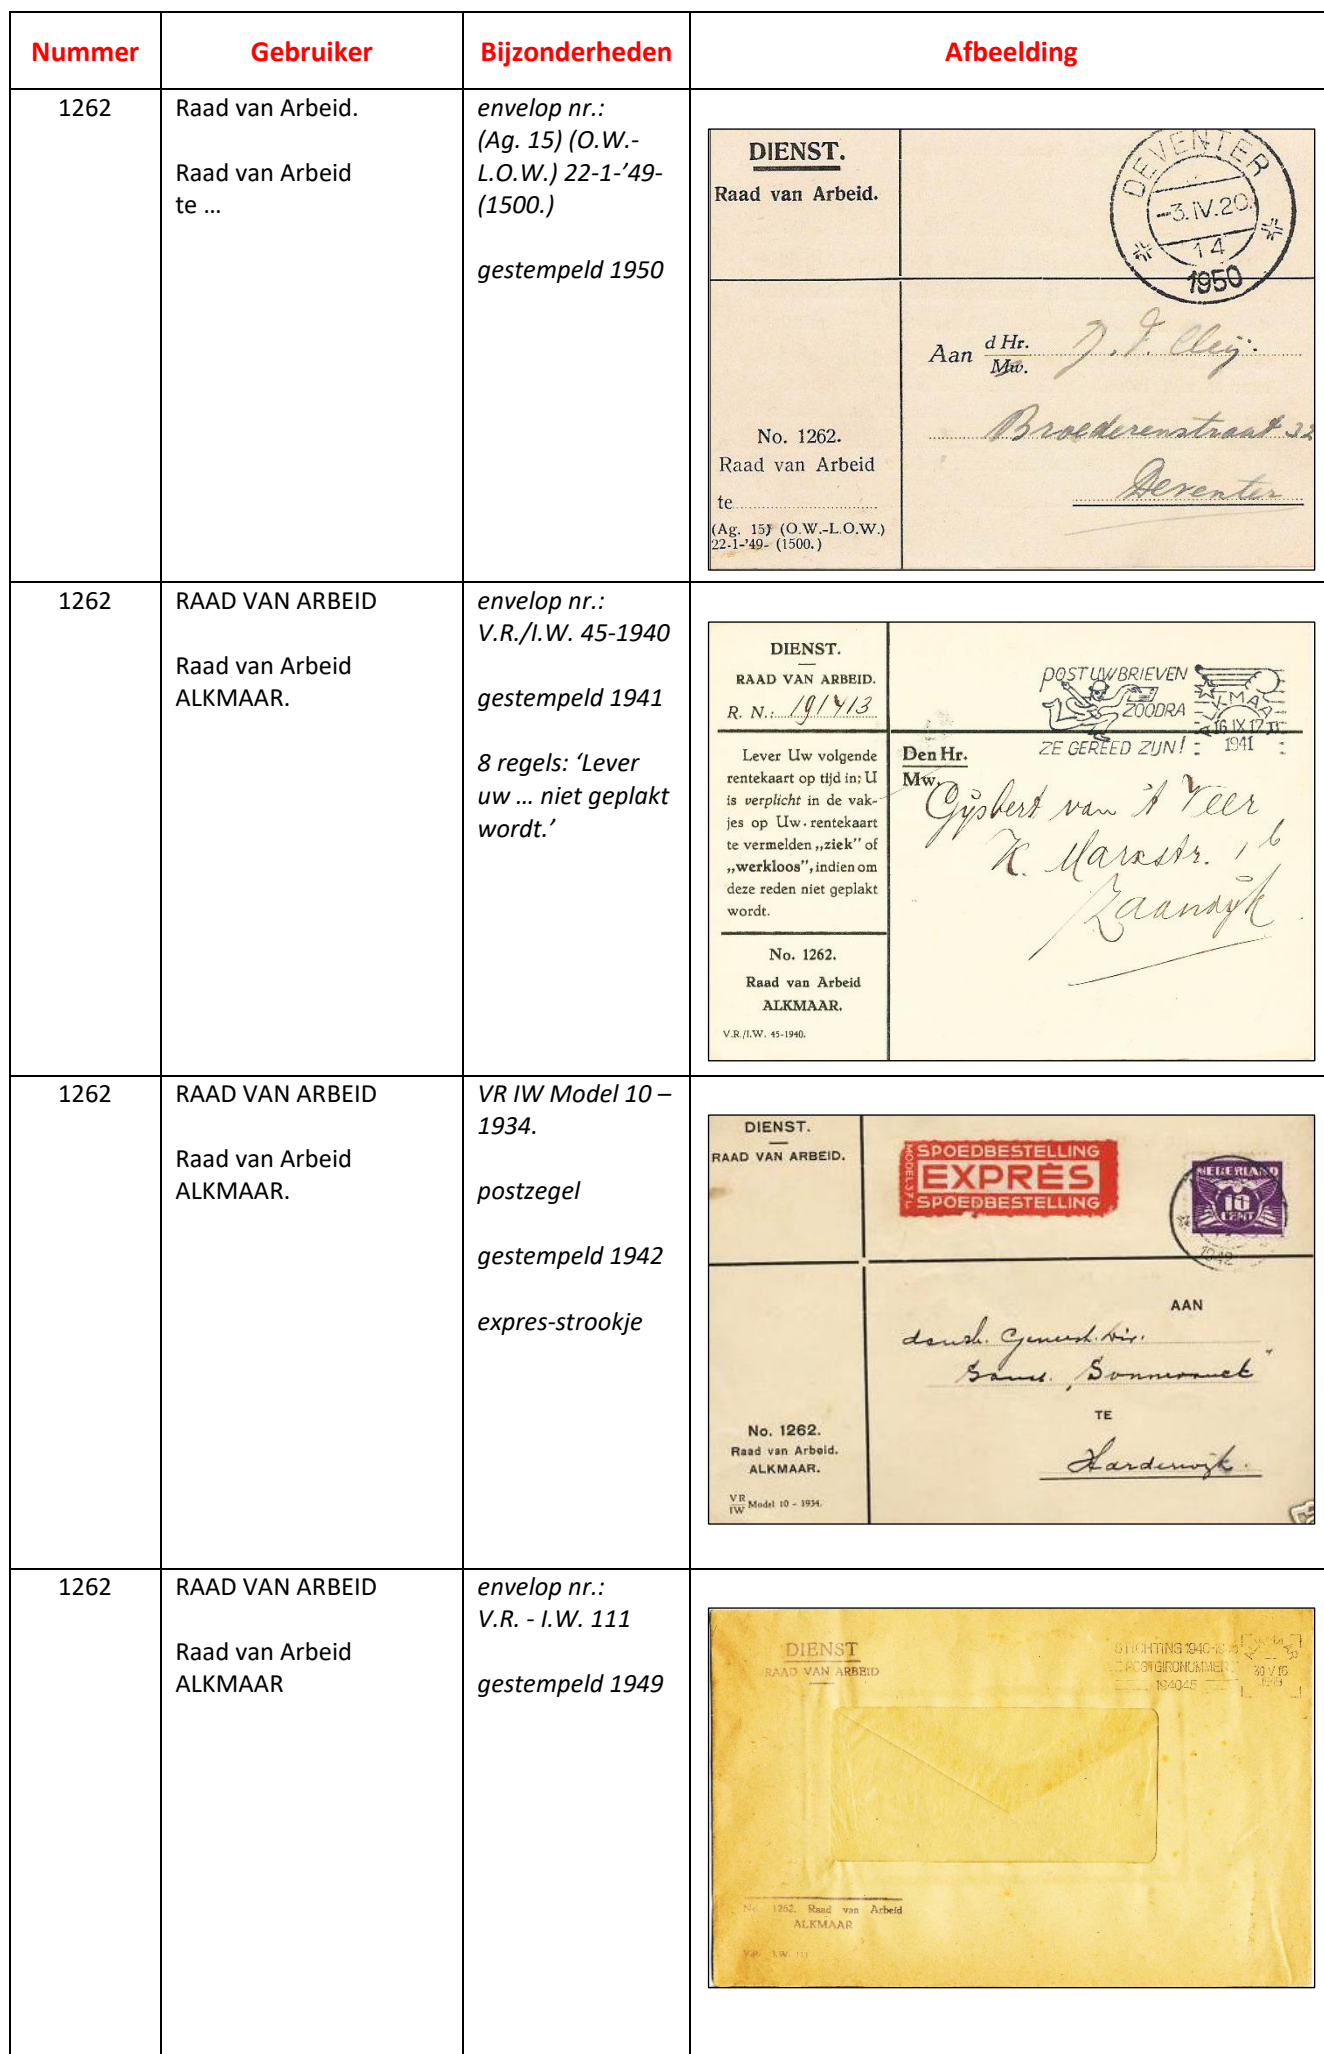 Nummer Gebruiker Bijzonderheden Afbeelding
1262
Raad van Arbeid.
Raad van Arbeid
te ...
envelop nr.:
(Ag. 15) (O.W.-
L.O.W.) 22-1-’49-
(1500.)
gestempeld 1950
DIENST.
Raad van Arbeid.
DEVENTER
-3.IV.20.
14
1950
Aan d Hr.
Mw.
Broederenstraat 32
Deventer
No. 1262.
Raad van Arbeid
te
(Ag. 15) (O.W.-L.O.W.)
22-1-'49- (1500.)
1262
RAAD VAN ARBEID
Raad van Arbeid
ALKMAAR.
envelop nr.:
V.R./I.W. 45-1940
gestempeld 1941
8 regels: ‘Lever
uw ... niet geplakt
wordt.’
DIENST.
RAAD VAN ARBEID.
R. N.: 191413
POST UW BRIEVEN
ZOODRA
ZE GEREED ZIJN!
ALKMAAR
16 IX 17
1941
Lever Uw volgende
rentekaart op tijd in; U
is verplicht in de vak-
jes op Uw rentekaart
te vermelden „ziek” of
„werkloos”, indien om
deze reden niet geplakt
wordt.
Den Hr.
Mw.
Gijsbert van 't Veer
K. Marxstr. 16
Zaandijk
No. 1262.
Raad van Arbeid
ALKMAAR.
V.R./I.W. 45-1940.
1262
RAAD VAN ARBEID
Raad van Arbeid
ALKMAAR.
VR IW Model 10 –
1934.
postzegel
gestempeld 1942
expres-strookje
DIENST.
RAAD VAN ARBEID.
SPOEDBESTELLING
EXPRÈS
SPOEDBESTELLING
NEDERLAND
10
CENT
1942
AAN
TE
Harderwijk.
No. 1262.
Raad van Arbeid.
ALKMAAR.
VR
IW Model 10 - 1934.
1262
RAAD VAN ARBEID
Raad van Arbeid
ALKMAAR
envelop nr.:
V.R. - I.W. 111
gestempeld 1949
DIENST
RAAD VAN ARBEID
STICHTING 1940-
POSTGIRONUMMER
194045
30 V 16
1949
No. 1262. Raad van Arbeid
ALKMAAR
V.R. I.W. 111